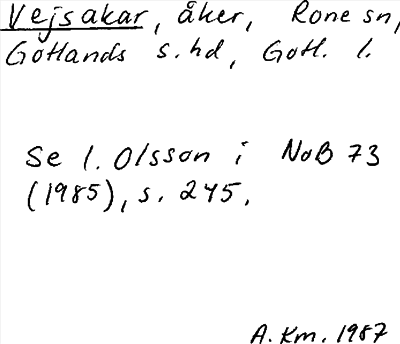 Vejsakar, åker, Rone sn,
Gotlands s. hd, Gotl. l.
Se I. Olsson i NoB 73
(1985), s. 245.
A. Km. 1987